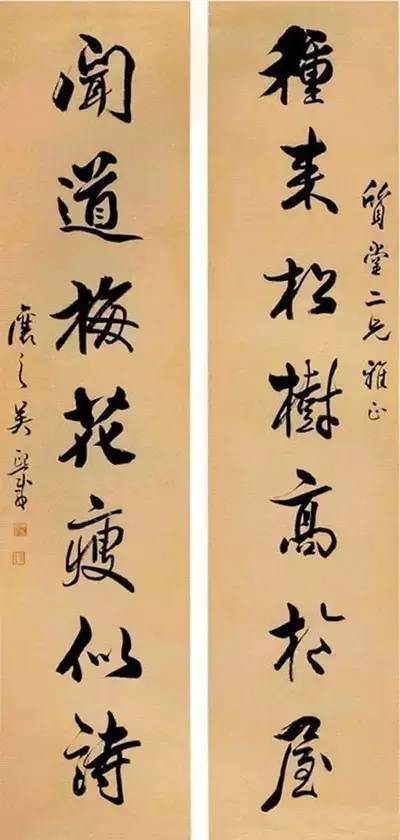 質堂二兄雅正
種來松樹高於屋
聞道梅花瘦似詩
讓之吳熙載